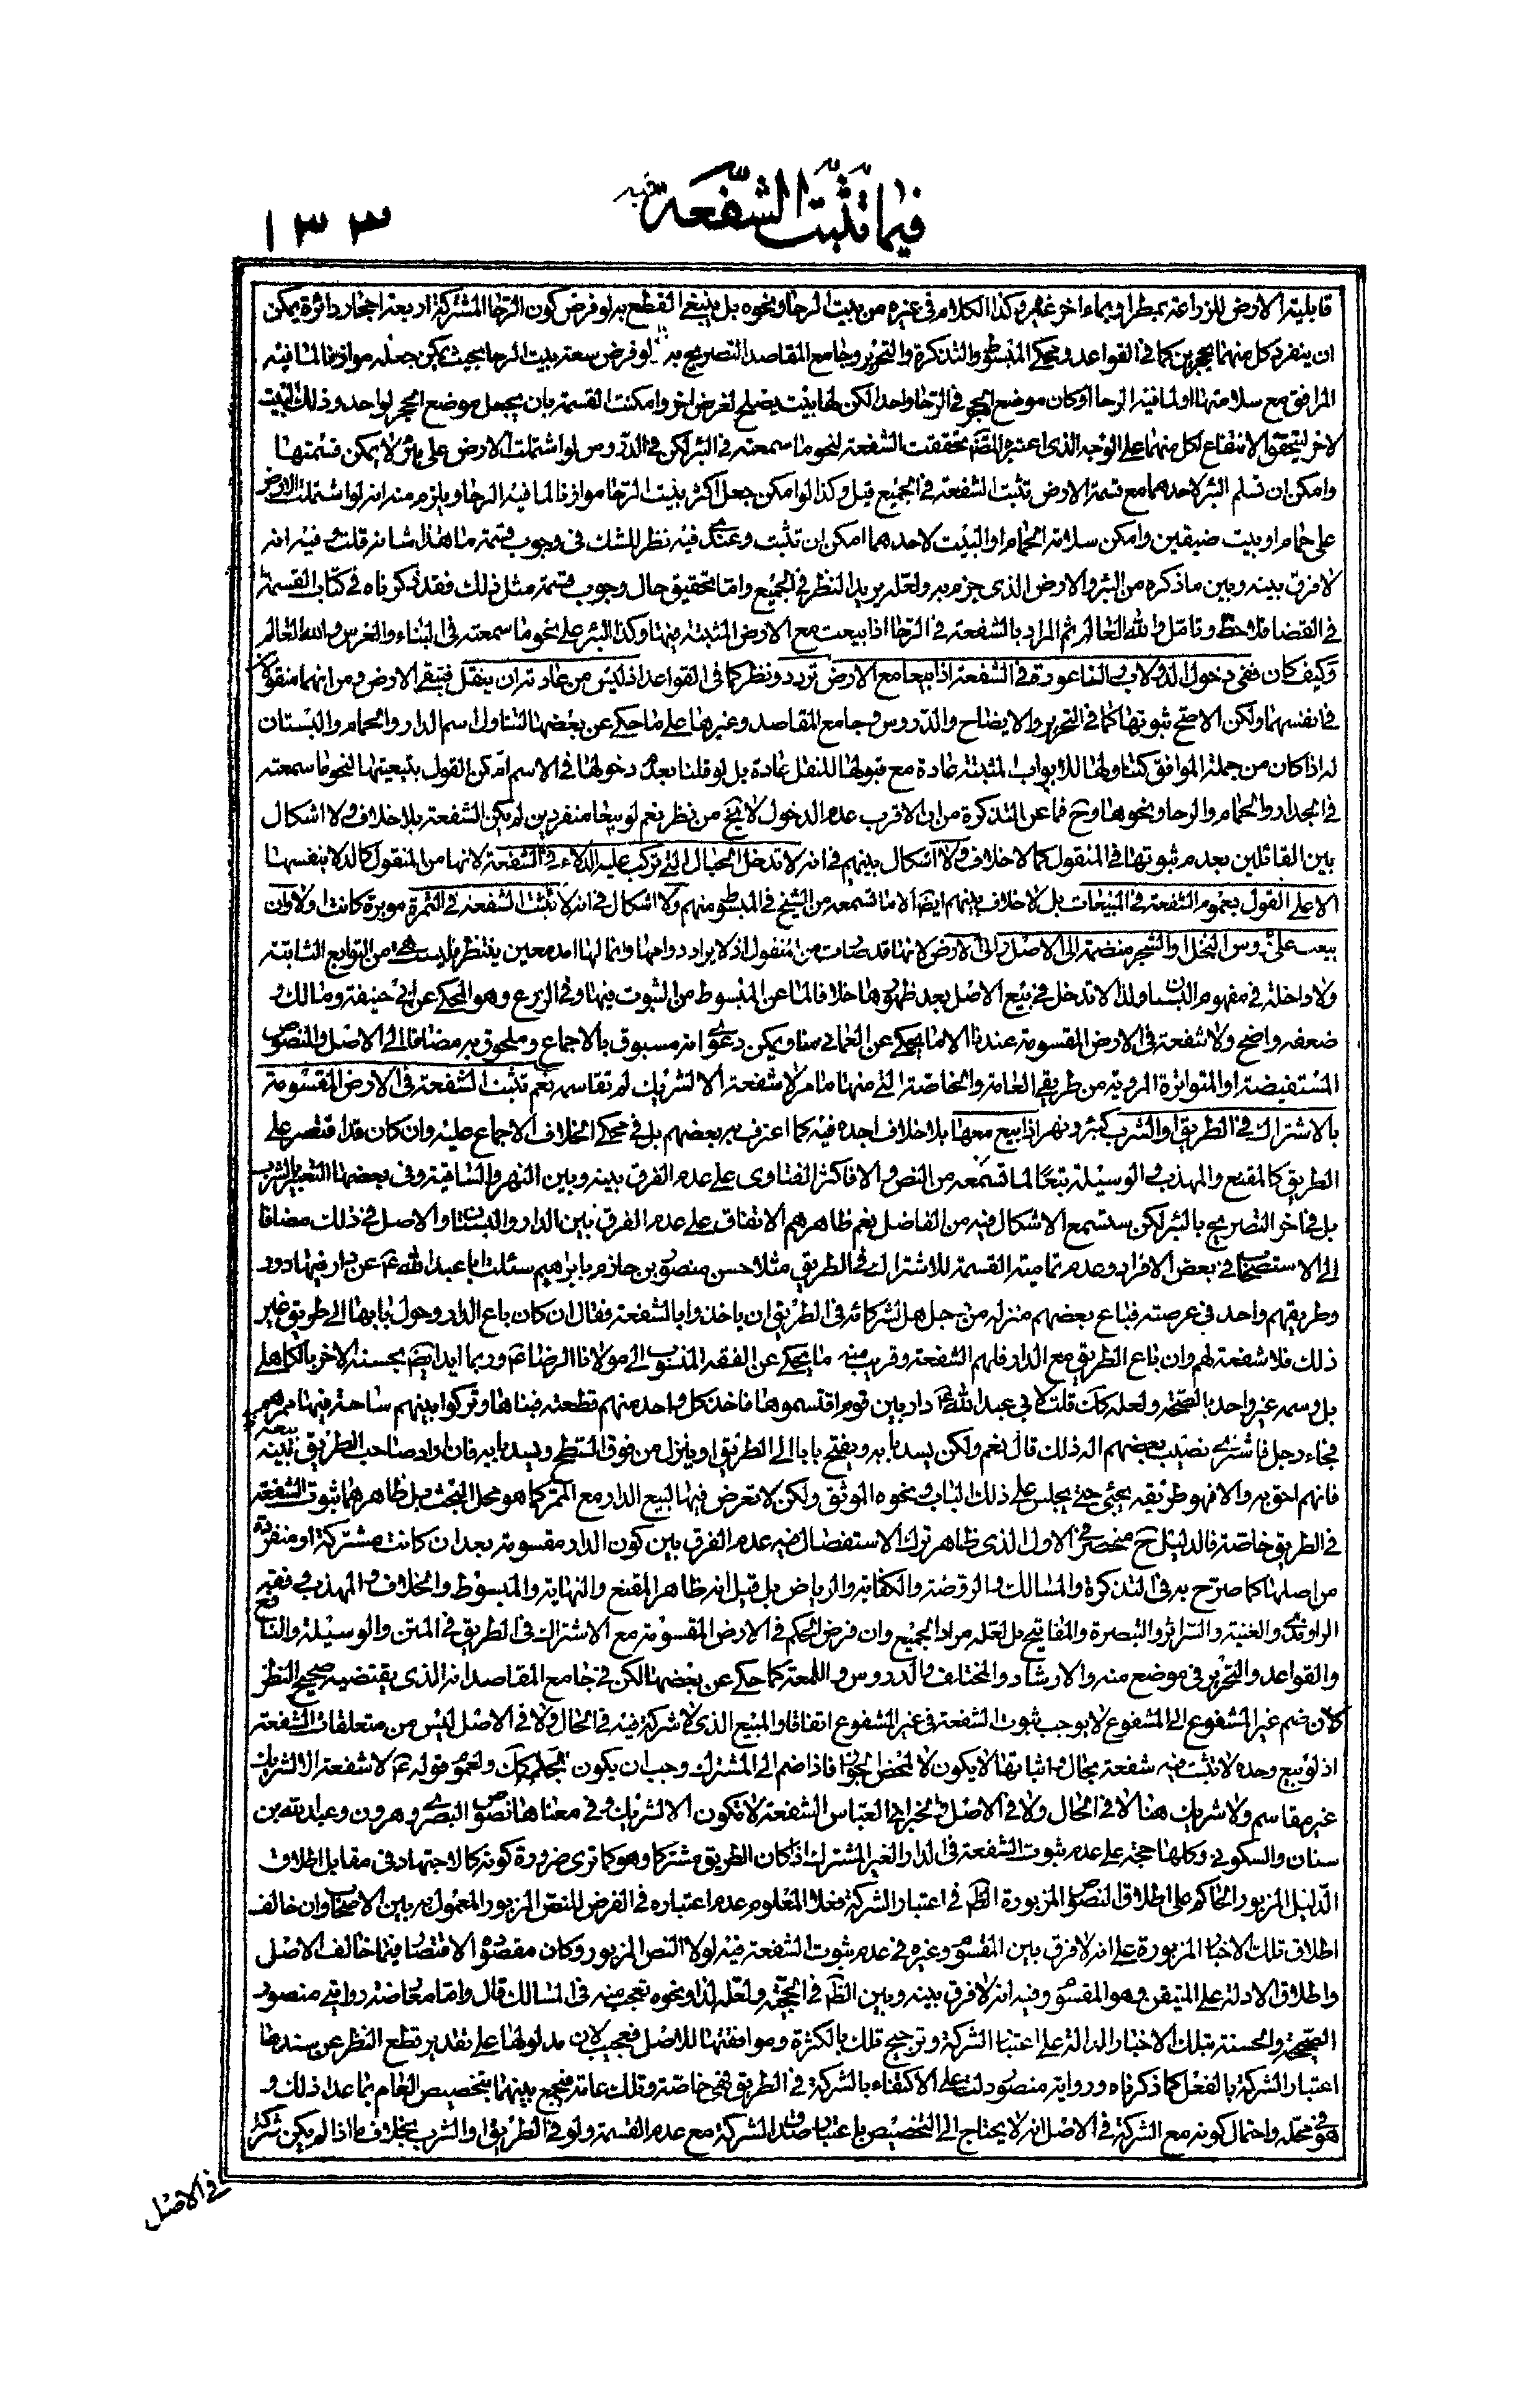 فيما تثبت الشفعة فيه
١٣٣
قابلية الارض للزراعة بمطر او بماء اخر غيره وكذا الكلام في غيره من بيت الرحا ونحوه بل ينبغي القطع به لو فرض كون الرحا المشتركة اربعة احجار دائرة يمكن
ان ينفرد كل منهما بحجرين كما في القواعد ومحكي المبسوط والتذكرة والتحرير وجامع المقاصد التصريح به لو فرض سعة بيت الرحا بحيث يمكن جعله موازنا لما فيه
المرافق مع سلامتها او لما فيه الرحا او كان موضع الحجر في الرحا واحدا لكن لها بيت يصلح لغرض اخر وامكنت القسمة بان يجعل موضع الحجر لواحد وذلك البيت
لاخر ليتحقق الانتفاع لكل منهما على الوجه الذي اعتبره المصنف تحققت الشفعة لنحو ما سمعته في البئر لكن في الدروس لو اشتملت الارض على بئر لا يمكن قسمتها
وامكن ان تسلم البئر لاحدهما مع قسمة الارض تثبت الشفعة في الجميع قيل وكذا لو امكن جعل اكثر بيت الرحا موازنا لما فيه الرحا ويلزم منه انه لو اشتملت الارض
على حمام او بيت ضيقين وامكن سلامة الحمام او البيت لاحدهما امكن ان تثبت وعندي فيه نظر للشك في وجوب قسمة ما هذا شانه قلت وفيه انه
لا فرق بينه وبين ما ذكره من البئر والارض الذي جزم به ولعله يريد النظر في الجميع واما تحقيق حال وجوب قسمة مثل ذلك فقد ذكرناه في كتاب القسمة
في القضا فلاحظ وتامل والله العالم ثم المراد بالشفعة في الرحا اذا بيعت مع الارض المثبتة فيها وكذا البئر على نحو ما سمعته في البناء والغرس والله العالم
وكيف كان ففي دخول الدولاب والناعورة في الشفعة اذا بيعا مع الارض تردد ونظر كما في القواعد اذ ليس من عادته ان ينقل فتبقى الارض ومن انهما منقولان
في انفسهما ولكن الاصح ثبوتها كما في التحرير والايضاح والدروس وجامع المقاصد وغيرها على ما حكي عن بعضها لتناول اسم الدار والحمام والبستان
له اذا كان من جملة الموافق كتناولها للابواب المثبتة عادة مع قبولها للنقل عادة بل لو قلنا بعدم دخولها في الاسم امكن القول بتبعيتها لنحو ما سمعته
في الجدار والحمام والرحا ونحوها وح فما عن التذكرة من ان الاقرب عدم الدخول لا يخ من نظر نعم لو بيعا منفردين لم يكن الشفعة بلا خلاف ولا اشكال
بين القائلين بعدم ثبوتها في المنقول كما لا خلاف ولا اشكال بينهم في انه لا تدخل الحبال التي تركب عليه الدلاء في الشفعة لانها من المنقول كالدلاء بنفسها
الا على القول بعموم الشفعة في المبيعات بل لا خلاف بينهم ايض الا ما تسمعه من الشيخ في المبسوط منهم ولا اشكال في انه لا تثبت الشفعة في الثمرة موبرة كانت اولا وان
بيعت على رؤس النخل او الشجر منضمة الى الاصل والى الارض لانها قد صارت من منقول اذ لا يراد دوامها وانما لها امد معين ينتظر فليست من التوابع الثابتة
ولا داخلة في مفهوم البستان ولذا لا تدخل في بيع الاصل بعد ظهورها خلافا لما عن المبسوط من الثبوت فيها وفي الزرع وهو المحكي عن ابي حنيفة ومالك و
ضعفه واضح ولا شفعة في الارض المقسومة عندنا الا ما يحكى عن العماني منا ويمكن دعوى انه مسبوق بالاجماع وملحوق به مضافا الى الاصل والنصوص
المستفيضة او المتواترة المروية من طريقي العامة والخاصة التي منها ما مر لا شفعة الا لشريك لم تقاسمه نعم تثبت الشفعة في الارض المقسومة
بالاشتراك في الطريق او الشرب كبئر ونهر اذا بيع معها بلا خلاف اجده فيه كما اعترف به بعضهم بل في محكي الخلاف الاجماع عليه وان كان قد اقتصر على
الطريق كالمقنع والمهذب والوسيلة تبعا لما تسمعه من النص والا فاكثر الفتاوى على عدم الفرق بينه وبين النهر والساقية وفي بعضها التعبير بالشرب
بل في اخر التصريح بالبئر لكن ستسمع الاشكال فيه من الفاضل نعم ظاهرهم الاتفاق على عدم الفرق بين الدار والبستان والاصل في ذلك مضافا
الى الاستصحاب في بعض الافراد وعدم تمامية القسمة للاشتراك في الطريق مثلا حسن منصور بن حازم بابراهيم سئلت ابا عبد الله ع عن دار فيها دور
وطريقهم واحد في عرصة فباع بعضهم منزله من رجل هل لشركائه في الطريق ان ياخذوا بالشفعة فقال ان كان باع الدار وحول بابها الى طريق غير
ذلك فلا شفعة لهم وان باع الطريق مع الدار فلهم الشفعة وقريب منه ما يحكى عن الفقه المنسوب الى مولانا الرضا ع وربما ايد ايض بحسنه الاخر بالكاهلي
بل وسمه غير واحد بالصحة ولعله كك قلت لابي عبد الله ع دار بين قوم اقتسموها فاخذ كل واحد منهم قطعة فبناها وتركوا بينهم ساحة فيها ممرهم
فجاء رجل فاشترى نصيب بعضهم اله ذلك قال نعم ولكن يسد بابه ويفتح بابا الى الطريق او ينزل من فوق السطح ويسد بابه فان اراد صاحب الطريق بيعه
فانهم احق به والا فهو طريقه يجيئ حتى يجلس على ذلك الباب ونحوه الموثق ولكن لا تعرض فيها لبيع الدار مع الممر كما هو محل البحث بل ظاهرهما ثبوت الشفعة
في الطريق خاصة فالدليل ح منحصر في الاول الذي ظاهر ترك الاستفصال فيه عدم الفرق بين كون الدار مقسومة بعد ان كانت مشتركة او منفردة
من اصلها كما صرح به في التذكرة والمسالك والروضة والكفاية والرياض بل قيل انه ظاهر المقنع والنهاية والمبسوط والخلاف والمهذب وفقه
الراوندي والغنية والسرائر والتبصرة والمفاتيح بل لعله مراد الجميع وان فرض الحكم في الارض المقسومة مع الاشتراك في الطريق في المتن والوسيلة والنافع
والقواعد والتحرير في موضع منه والارشاد والمختلف والدروس واللمعة كما حكي عن بعضها لكن في جامع المقاصد انه الذي يقتضيه صحيح النظر
لان ضم غير المشفوع الى المشفوع لا يوجب ثبوت الشفعة في غير المشفوع اتفاقا والمبيع الذي لا شركة فيه في الحال ولا في الاصل ليس من متعلقات الشفعة
اذ لو بيع وحده لا تثبت فيه شفعة بحال واثباتها لا يكون لا لمحض الجوار فاذا ضم الى المشترك وجب ان يكون الحكم كك ولعموم قوله ع لا شفعة الا لشريك
غير مقاسم ولا شريك هنا لا في الحال ولا في الاصل ولخبر ابي العباس الشفعة لا تكون الا لشريك وفي معناها نصوص البصري وهرون وعبد الله بن
سنان والسكوني وكلها حجة على عدم ثبوت الشفعة في الدار والغير المشترك اذا كان الطريق مشتركا وهو كما ترى ضرورة كونه كالاجتهاد في مقابل اطلاق
الدليل المزبور الحاكم على اطلاق النصوص المزبورة الظ في اعتبار الشركة فعلا المعلوم عدم اعتباره في الفرض للنص المزبور المعمول به بين الاصحاب وان خالف
اطلاق تلك الاخبار المزبورة على انه لا فرق بين المقسوم وغيره في عدم ثبوت الشفعة فيه لولا النص المزبور وكان مقصوده الاقتصار فيما خالف الاصل
واطلاق الادلة على المتيقن وهو المقسوم وفيه انه لا فرق بينه وبين الظ في الحجية ولعله لذا ونحوه تعجب منه في المسالك قال واما معارضة روايتي منصور
الصحيحة والحسنة بتلك الاخبار الدالة على اعتبار الشركة وترجيح تلك بالكثرة وموافقتها للاصل فعجيب لان مدلولها على تقدير قطع النظر عن سندها
اعتبار الشركة بالفعل كما ذكرناه ورواية منصور دلت على الاكتفاء بالشركة في الطريق فهي خاصة وتلك عامة فيجمع بينهما بتخصيص العام بما عدا ذلك و
هو في محله واحتمال كونه مع الشركة في الاصل انه لا يحتاج الى التخصيص باعتبار صدق الشركة مع عدم القسمة ولو في الطريق او الشرب بخلاف ما اذا لم يكن شركة
في الاصل